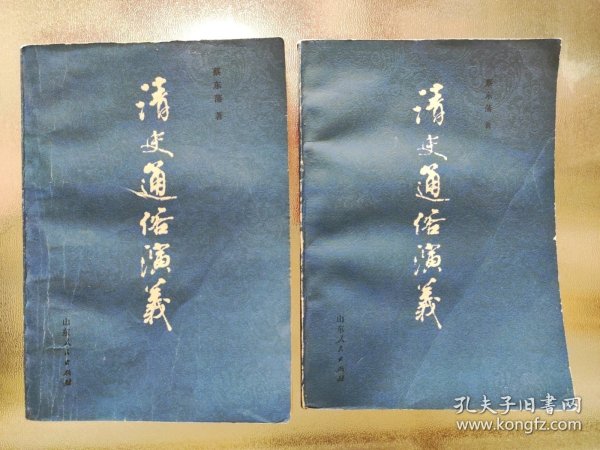 清史通俗演义
蔡东藩 著
山东人民出版社
清史通俗演义
蔡东藩 著
山东人民出版社
孔夫子旧书网
www.kongfz.com